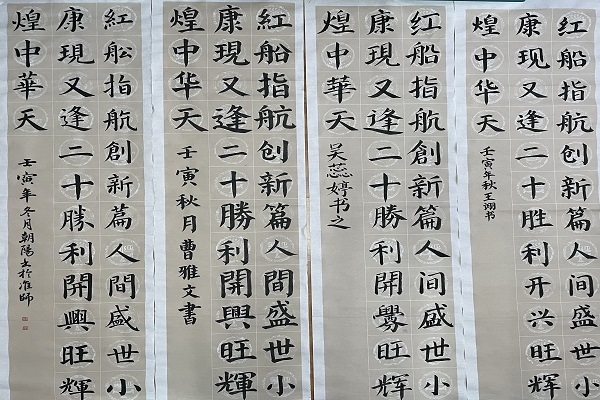 红船指航创新篇人间盛世小
康现又逢二十胜利开兴旺辉
煌中华天 壬寅年秋王翊书
红船指航創新篇人间盛世小
康現又逢二十勝利開興旺辉
煌中華天 吴蕊婷书之
紅船指航创新篇人間盛世小
康現又逢二十勝利開興旺輝
煌中华天 壬寅秋月曹雅文書
紅船指航創新篇人間盛世小
康現又逢二十勝利開興旺輝
煌中華天 壬寅年冬月朝陽文於淮師